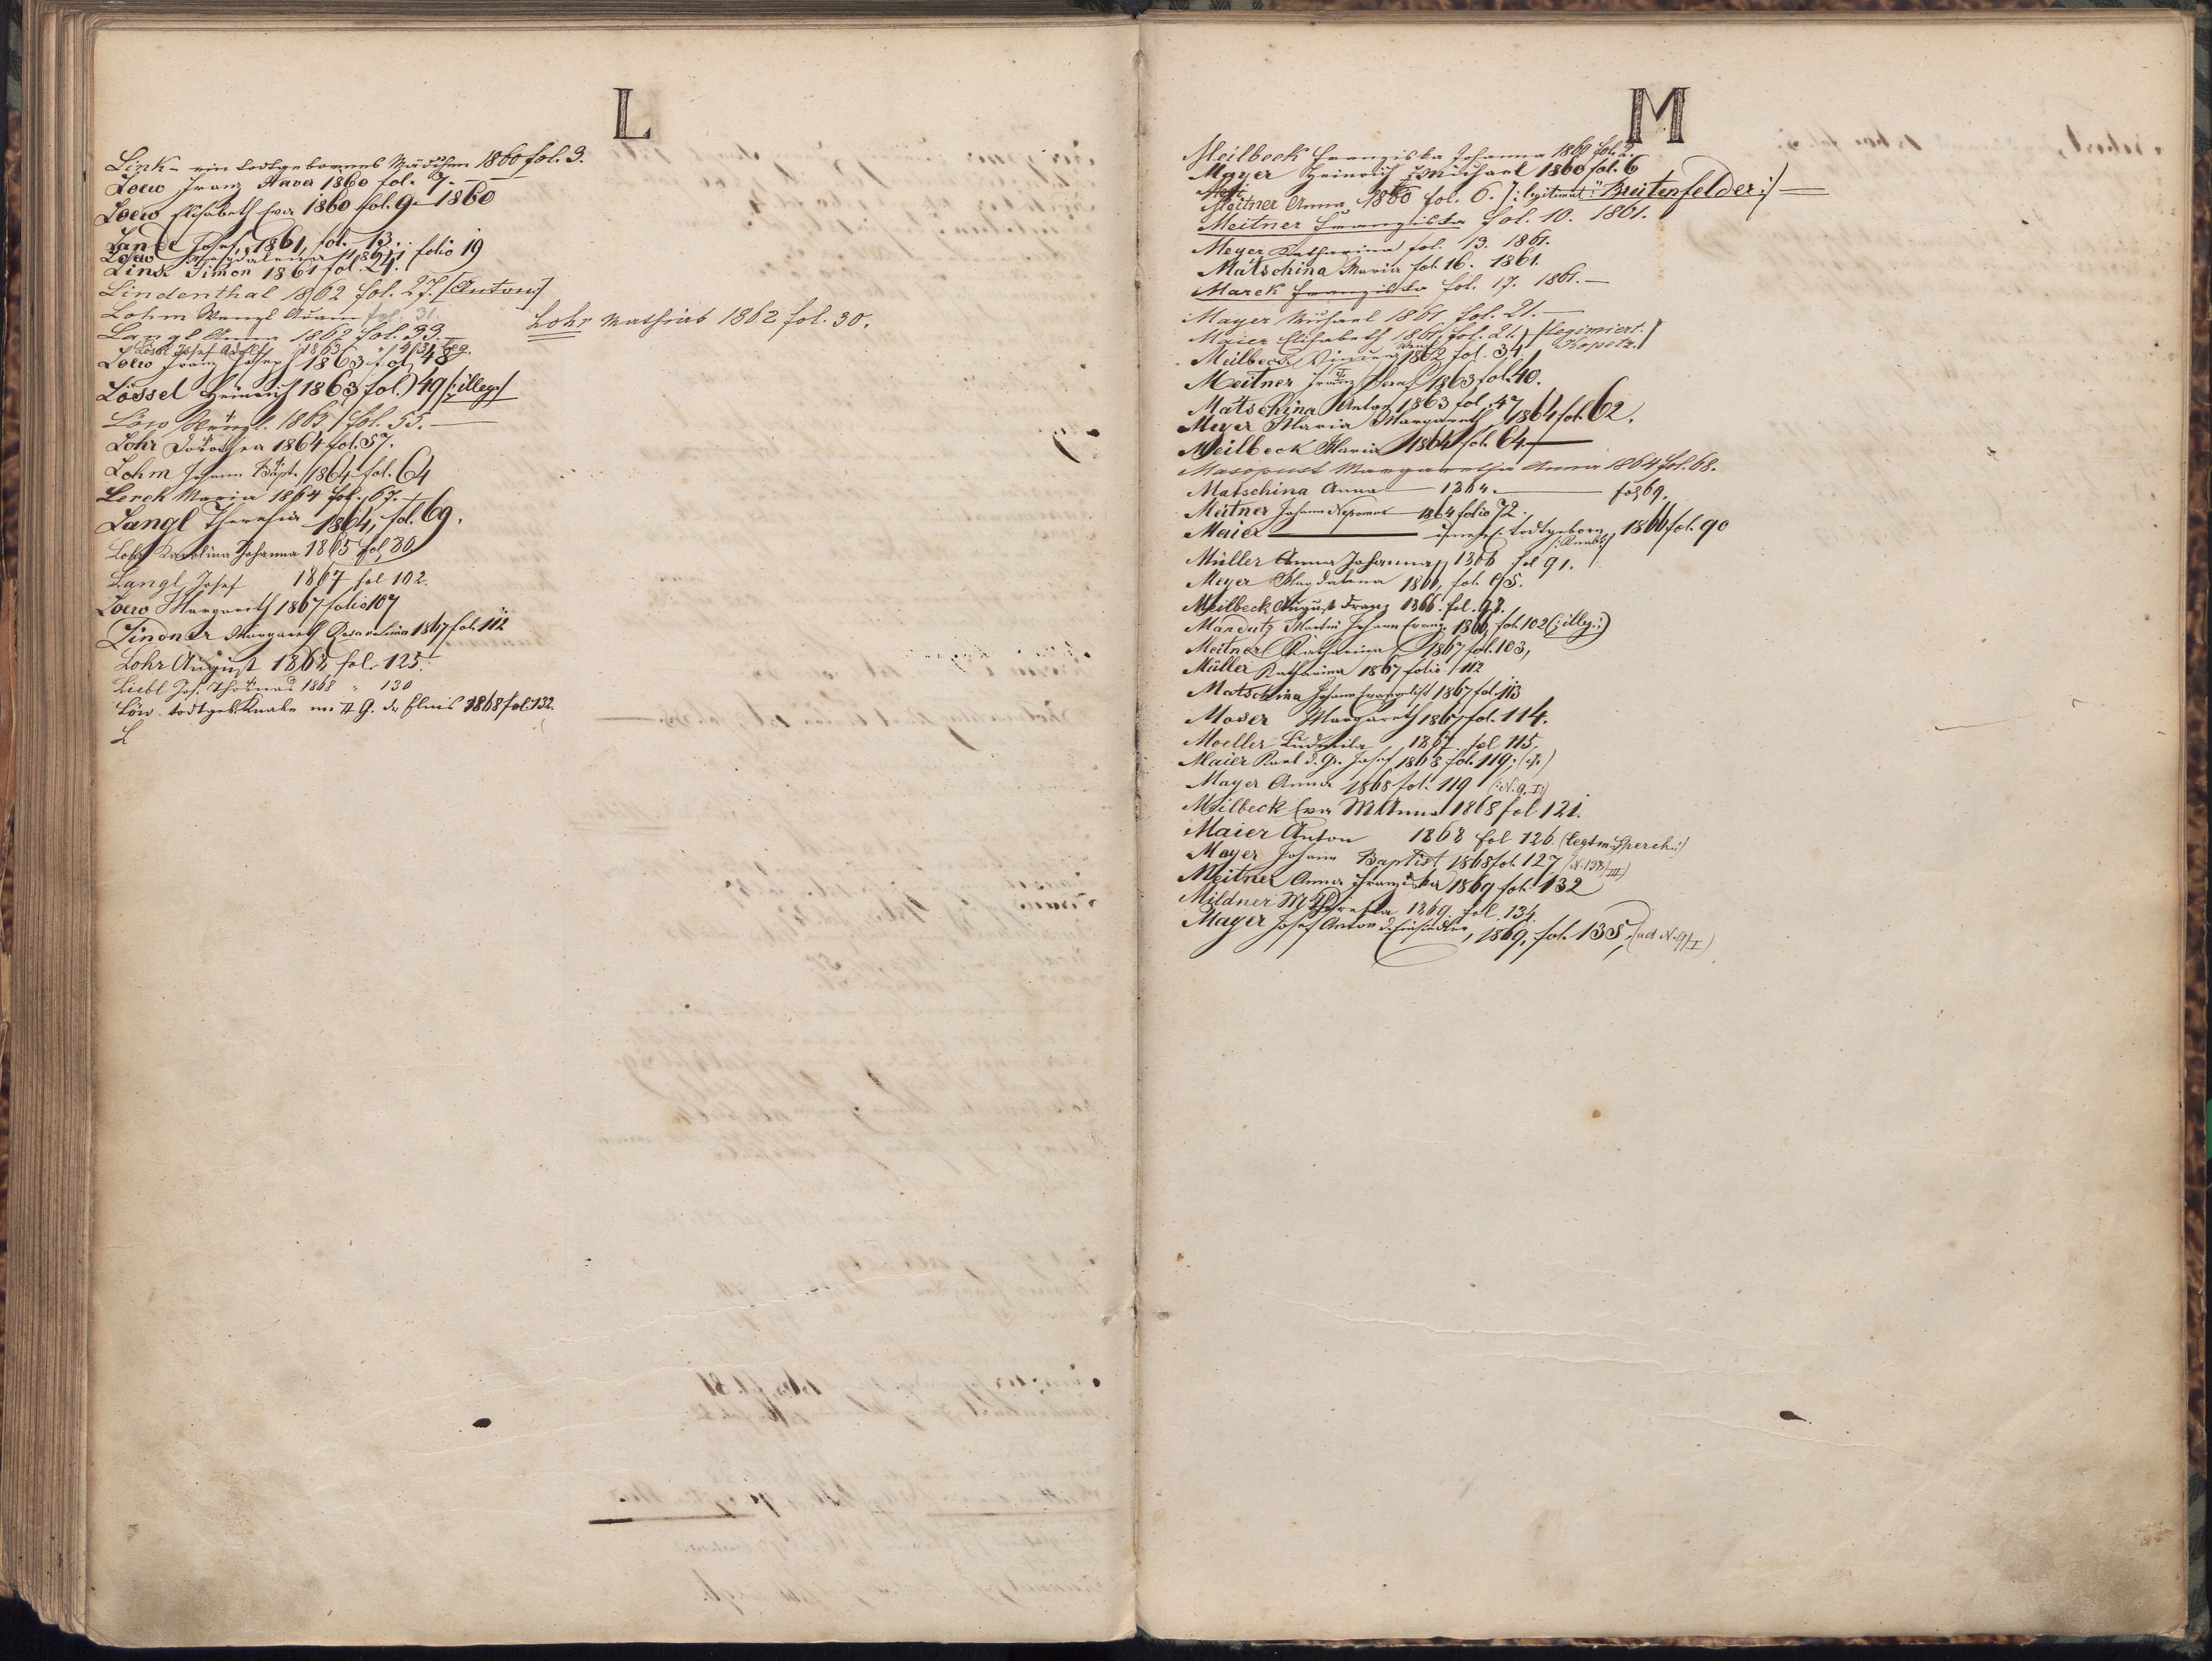 L
Link - ein todtgebornes Mädchen 1860 fol. 3.
Loew Franz Xaver 1860 fol. 7. —
Loew Elisabeth Eva 1860 fol. 9. 1860
Landl Josef, 1861, fol. 13.
Loew Magdalena 1861 folio 19
Link Simon 1861 fol. 24.
Lindenthal 1862 fol. 27. /:Anton:/
Lohm Wenzl Adam fol. 31.
Lohr Mathias 1862 fol. 30.
Langl Anna 1862 fol. 33.
Lössl Josef Adolf 1863
Loew Franz Joseph 1863 fol. 48
Lössel Heinrich 1863 fol. 49 /:illeg:/
Löw Wenzl. 1863 fol. 55. —
Lohr Dorothea 1864 fol. 57.
Lohm Johann Bapt. 1864 fol. 64
Lerch Maria 1864 fol. 67. —
Langl Theresia 1864, fol. 69.
Lohr Karolina Johanna 1865 fol. 80
Langl Josef 1867 fol 102.
Loew Margareth 1867 folio 107
Lindner Margareth Rosa de Lima 1867 fol. 112
Lohr August 1868 fol. 125.
Liebl Jos. Thomas 1868 " 130
Löw. todtgeb. Knabe 1868 fol. 132.
L
M
Meilbeck Franziska Johanna 1860 fol. 2.
Mayer Heinrich Michael 1860 fol. 6
Meitner Anna 1860 fol. 6. /: legitimat: Breitenfelder :/ —
Meitner Franziska fol. 10. 1861.
Meyer Katharina fol. 13. 1861.
Matschina Maria fol. 16. 1861.
Marek Franziska fol. 17. 1861. —
Mayer Michael 1861 fol. 21. —
Maier Elisabeth 1861, fol. 21. /: legimiert. Kopetz. :/
Meilbeck Vincenz 1862 fol. 34.
Meitner Franz Seraf. 1863 fol. 40.
Matschina Anton 1863 fol. 47
Meyer Maria Margareth, 1864 fol. 62.
Meilbeck Maria 1864 fol. 64. —
Masopust Margaretha Anna 1864 fol. 68.
Matschina Anna — 1864. — fol 69.
Meitner Johann Nepomuk — 1864 folio 72.
Maier — todtgeborn /: Knabe :/ 1866 fol. 90
Müller Anna Johanna 1866 fol 91.
Meyer Magdalena 1866, fol. 95.
Meilbeck August Franz 1866. fol. 98.
Mandutz Martin Johann Evang. 1866, fol. 102 (: illeg :)
Meitner Katharina 1867 fol. 103,
Müller Katharina 1867 folio 112
Matschina Johann Evangelist 1867 fol. 113
Moser Margareth 1867 fol. 114.
Moeller Ludmila 1867 fol 115,
Maier Karl d. Gr. Josef 1868 fol. 119.
Mayer Anna 1868 fol. 119 (: N. 9. I)
Meilbeck Eva M Anna 1868 fol 121.
Maier Anton 1868 fol 126.
Mayer Johann Baptist 1868 fol. 127 (N. 138/III)
Meitner Anna Franziska 1869 fol. 132
Mildner M Theresia 1869 fol. 134.
Mayer Josef Anton d. Einsiedler, 1869, fol. 135, (ad N. 9/I)